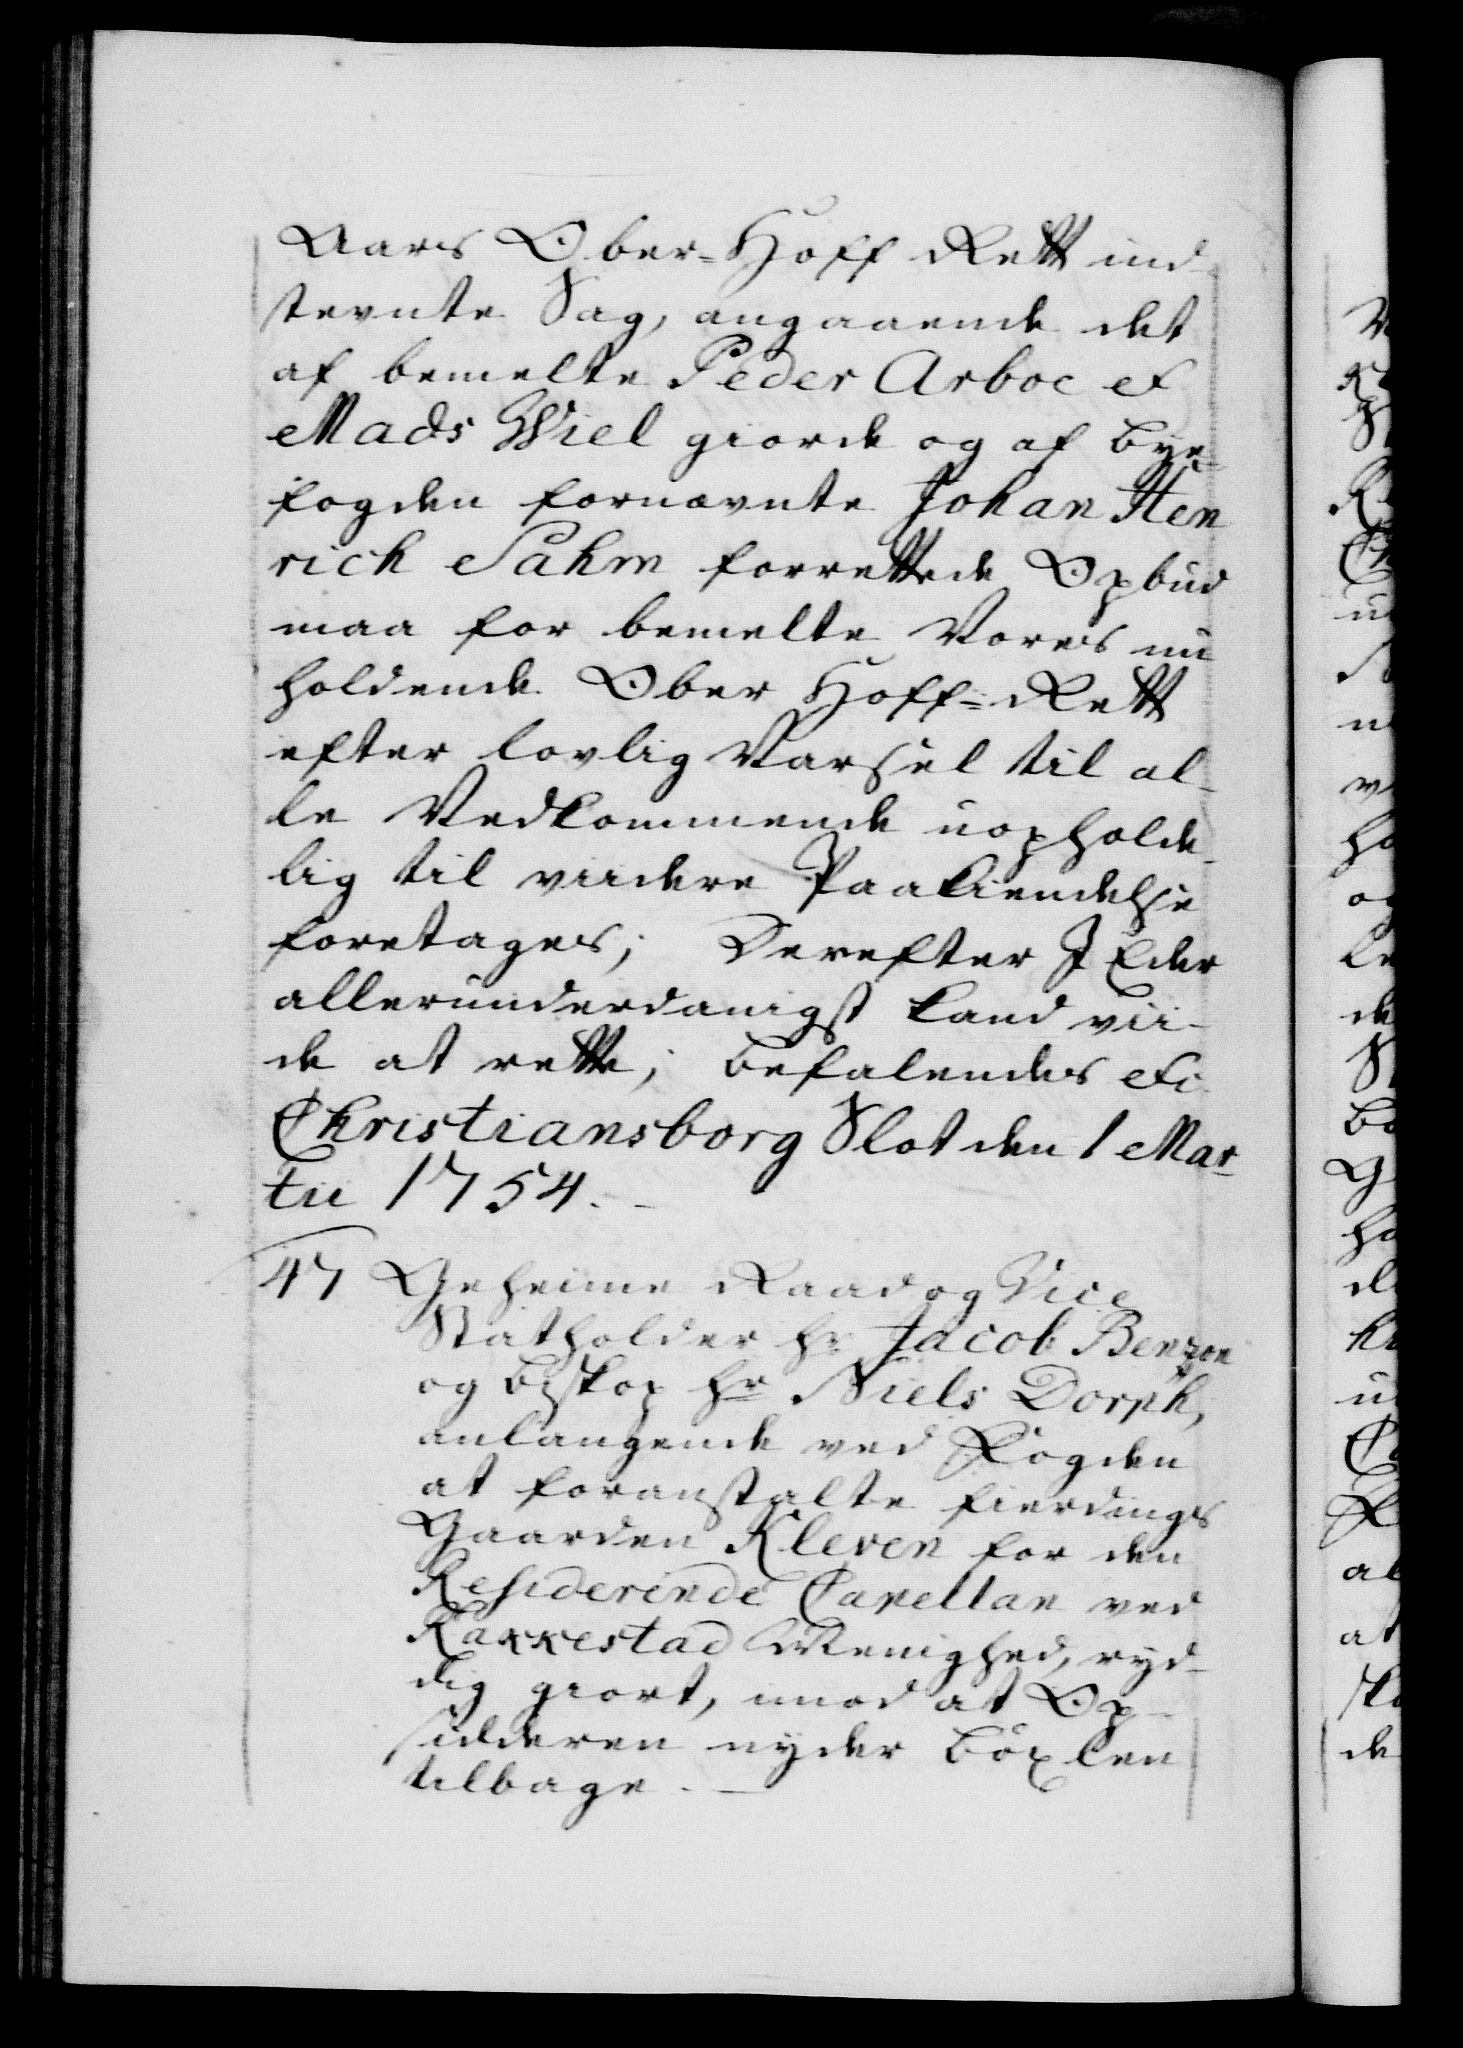 Aars Ober-Hoff Rett ind-
stevnte Sag, angaaende det
af bemelte Peder Arboe et
Mads Wiel giorde og af Bye-
fogden fornævnte Johan Hen
rich Sahm forrettede Opbud
maa for bemelte Vores nu
holdende Ober Hoff-Rett
efter lovlig Varsel til al-
le Vedkommende uopholde-
lig til viidere Paakiendelse
foretages; Derefter I Eder
allerunderdanigst kand vii-
de at rette; Befalendes &c
Christiansborg Slot den 1 Mar-
tii 1754.
47 Geheime Raad og Vice
Statholder Hr Jacob Benzon
og Biskop Hr Niels Dorph,
anlangende ved Fogden
at foranstalte fierdings
Gaarden Kleven for den
Residerende Capellan ved
Rakkestad Menighed, ryd-
dig giort, imod at Op-
sidderen nyder Böxlen
tilbage.